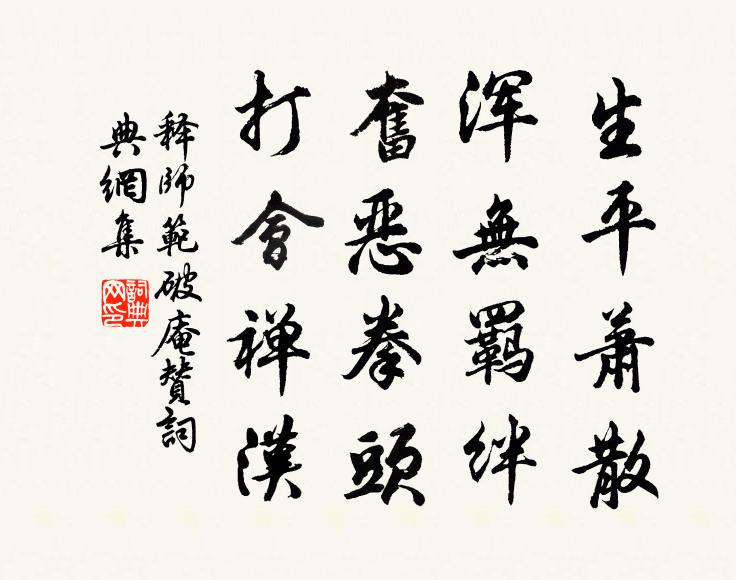 生平蕭散
渾無羈絆
奮惡拳頭
打會禅漢
釋師範破庵贊詞
典網集
詞典网印